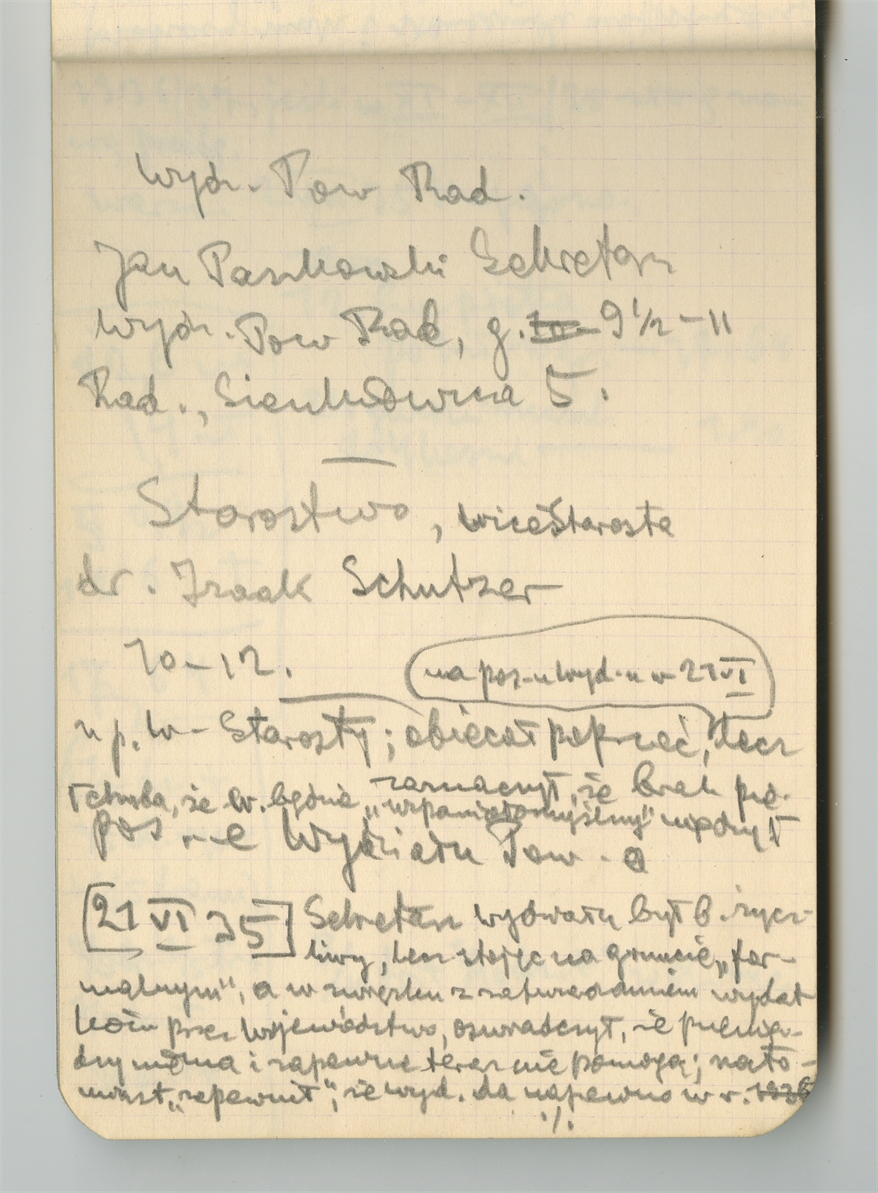 Wydz. Pow Rad.
Jan Paszkowski Sekretarz
Wydz. Pow Rad, g. 9 1/2 - 11
Rad., Sienkiewicza 5.
Starostwo, wiceStarosta
dr. Izaak Schutzer
10-12.
na pos-u wyd-u w 21 VI
u p. w-Starosty; obiecał poprzeć, lecz
zaznaczył, że brak pie-
trzeba, że W. będzie „wspaniałomyślny"
Wydziału Pow.
[21 VI 35] Sekretarz wydziału był b. życz-
liwy, lecz stojąc na gruncie „for-
malnym", a w związku z zatwierdzeniem wydat
ków przez Województwo, oświadczył, że
i zapewne teraz nie pomogą; nato-
miast „zapewnił", że wyd. da napewno w r. 1936
./.